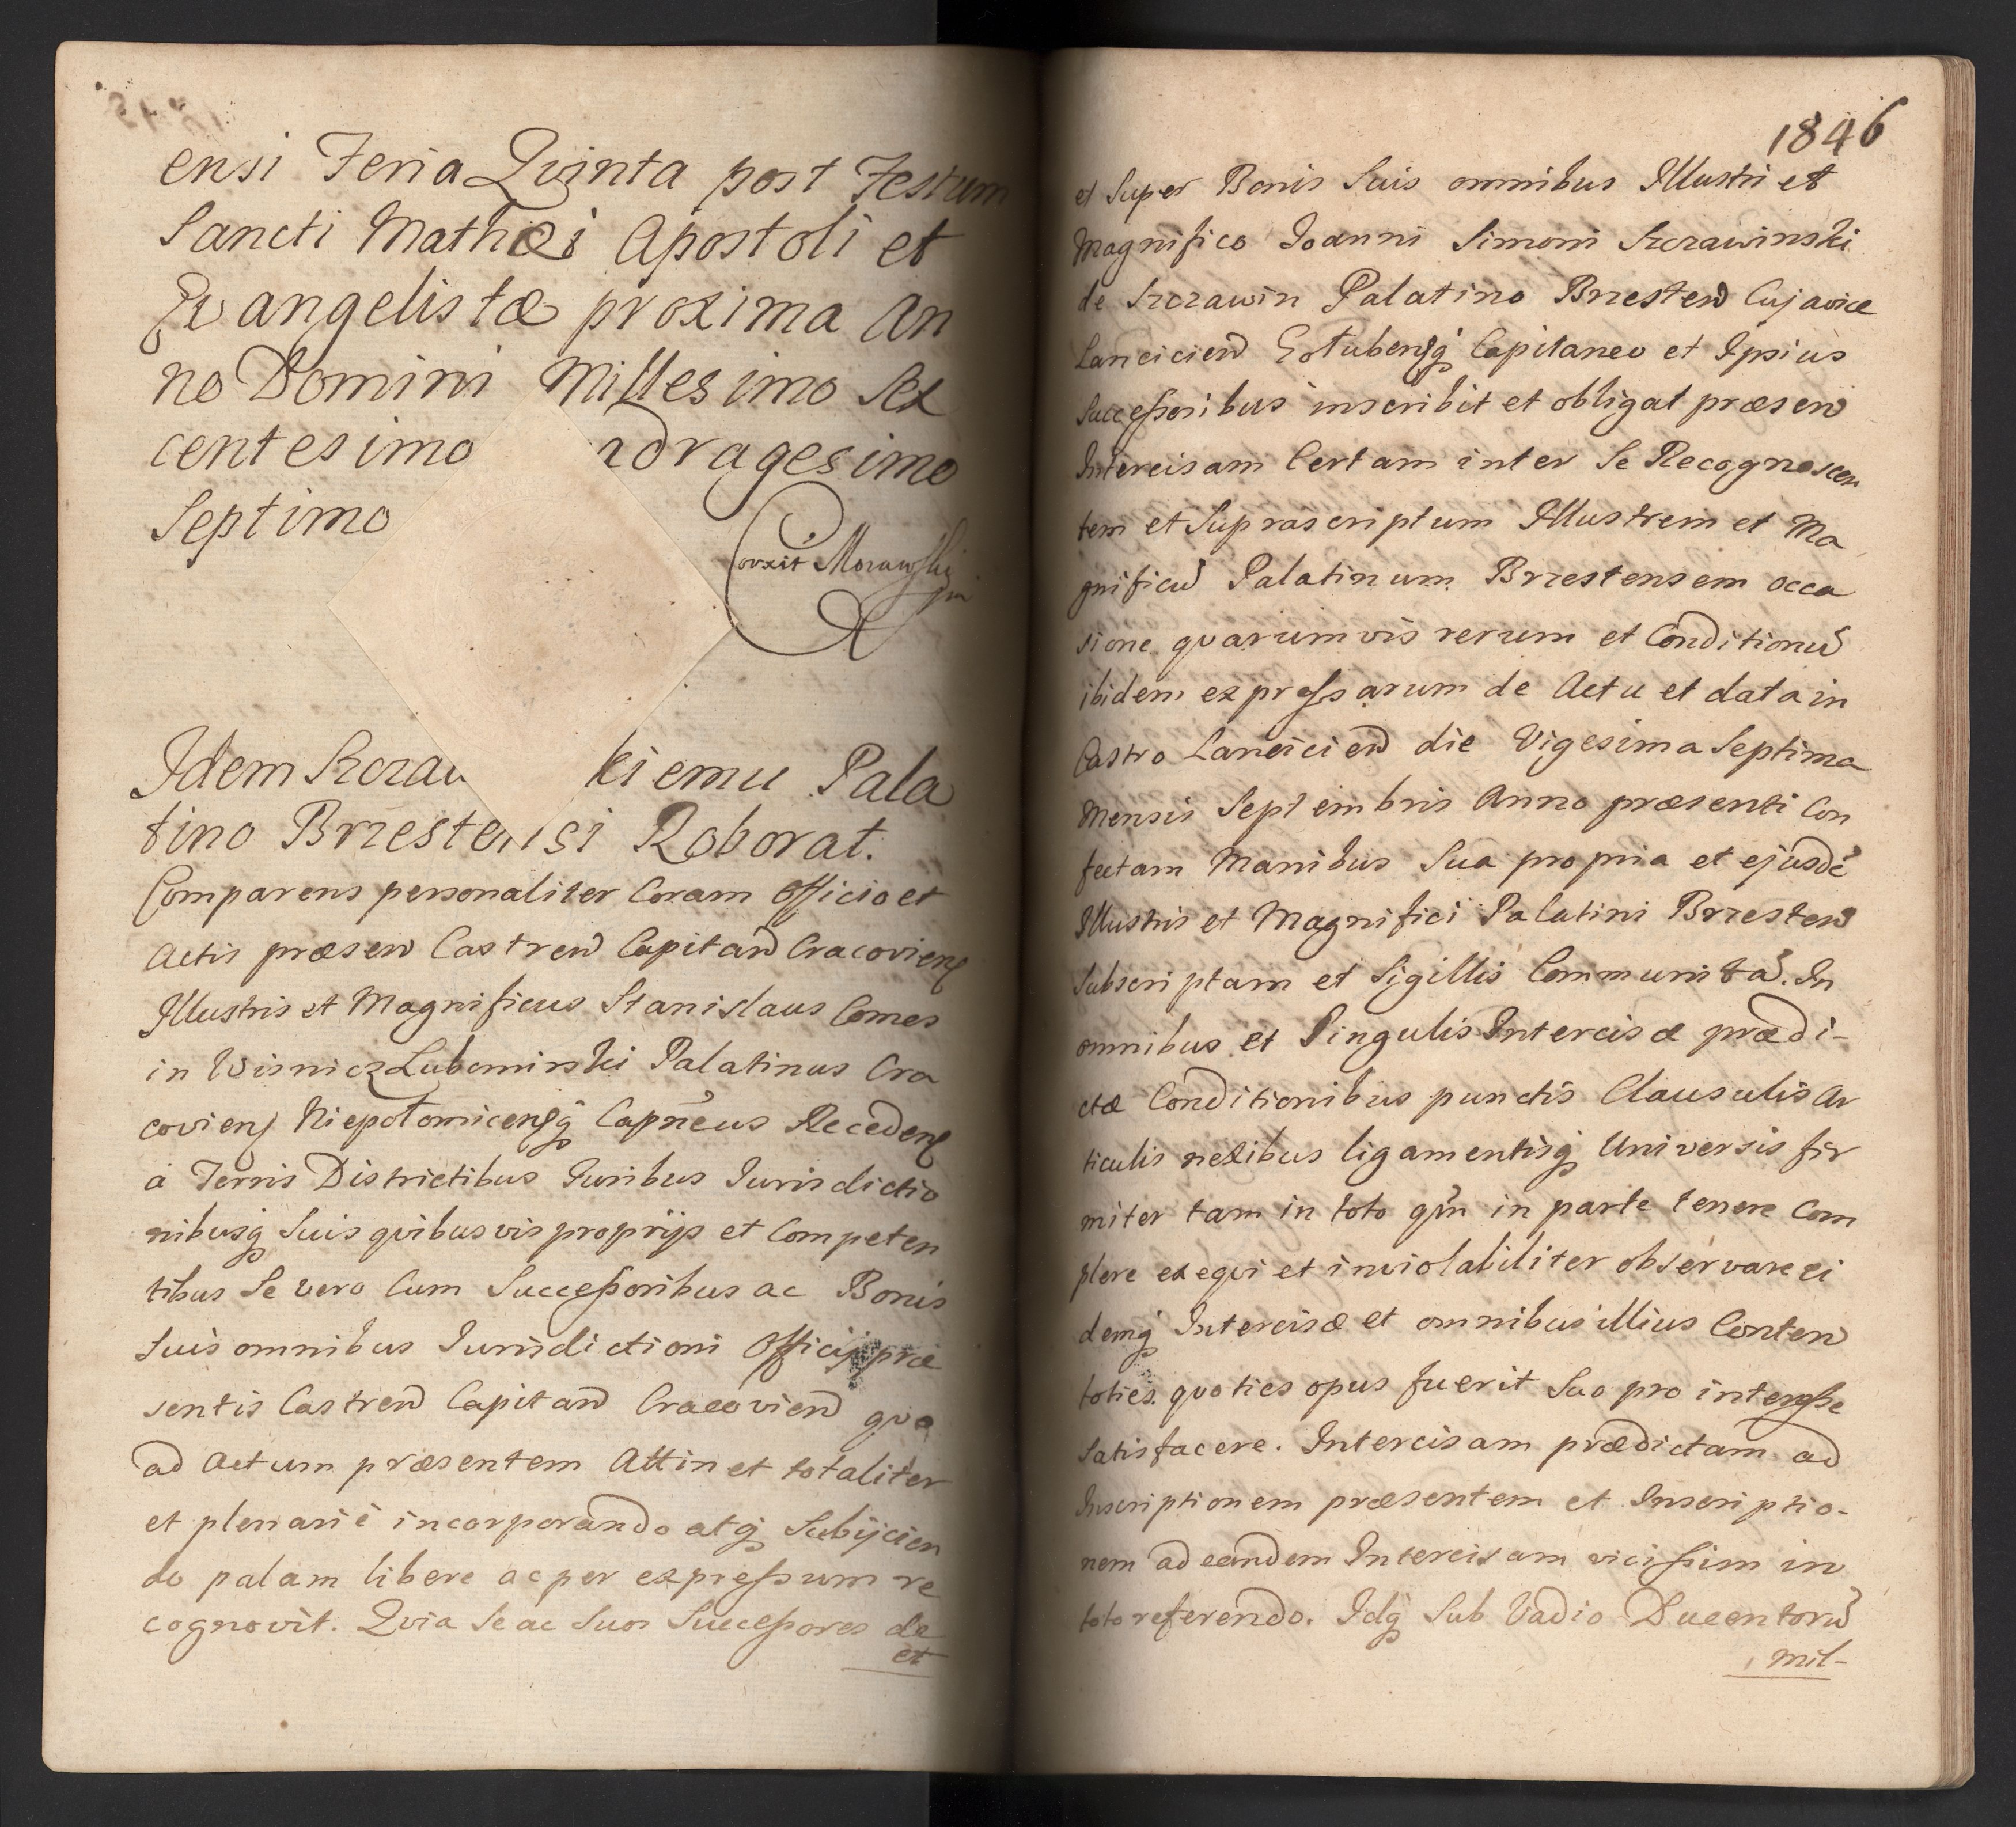 ensi Feria Qvinta post Festum
Sancti Mathæi Apostoli et
Evangelistæ proxima An
no Domini Millesimo Sex
centesimo adragesimo
Septimo
Corxit Morawski
Idem Szczaw kiemu Pala
tino Brzestensi Roborat.
Comparens personaliter Coram Officio et
Actis præsen Castren Capitan Cracoviens
Illustris et Magnificus Stanislaus Comes
in Wisnicz Lubomirski Palatinus Cra
coviens Niepołomicensq Capneus Recedens
à Terris Districtibus Iuribus Iurisdictio
nibusq Suis qvibusvis proprijs et Competen
tibus Se vero Cum Successoribus ac Bonis
Suis omnibus Iurisdictioni Officij præ
sentis Castren Capitan Cracovien qvo
ad Actum præsentem Attinet totaliter
et plenariè incorporando atq Subijcien
do palam libere ac per expressum re
cognovit. Qvia Se ac Suos Successores de
et
1846
et Super Bonis Suis omnibus Illustri et
Magnifico Ioanni Simoni Szczawinski
de Szczawin Palatino Brzesten Cujaviæ
Lancicien Gostubensq Capitaneo et Ipsius
Successoribus inscribit et obligat præsen
Intercisam Certam inter Se Recognoscen
tem et Suprascriptum Illustrem et Ma
gnificu Palatinum Brzestensem occa
sione qvarumvis rerum et Conditionu
ibidem expressarum de Actu et data in
Castro Lancicien die Vigesima Septima
Mensis Septembris Anno præsenti Con
fectam Manibus Sua propria et ejusde
Illustris et Magnifici Palatini Brzesten
Subscriptam et Sigillis Communita. In
omnibus et Singulis Intercisæ prædi-
ctæ Conditionibus punctis Clausulis Ar
ticulis nexibus ligamentisq Universis fir
miter tam in toto qvm in parte tenere Com
plere exeqvi et inviolabiliter observare ei
demq Intercisæ et omnibus illius Conten
toties qvoties opus fuerit Suo pro interesse
Satisfacere. Intercisam prædictam ad
Inscriptionem præsentem et Inscriptio-
nem ad eandem Intercisam vicissim in
toto referendo. Idq Sub Vadio Ducentoru
mil-